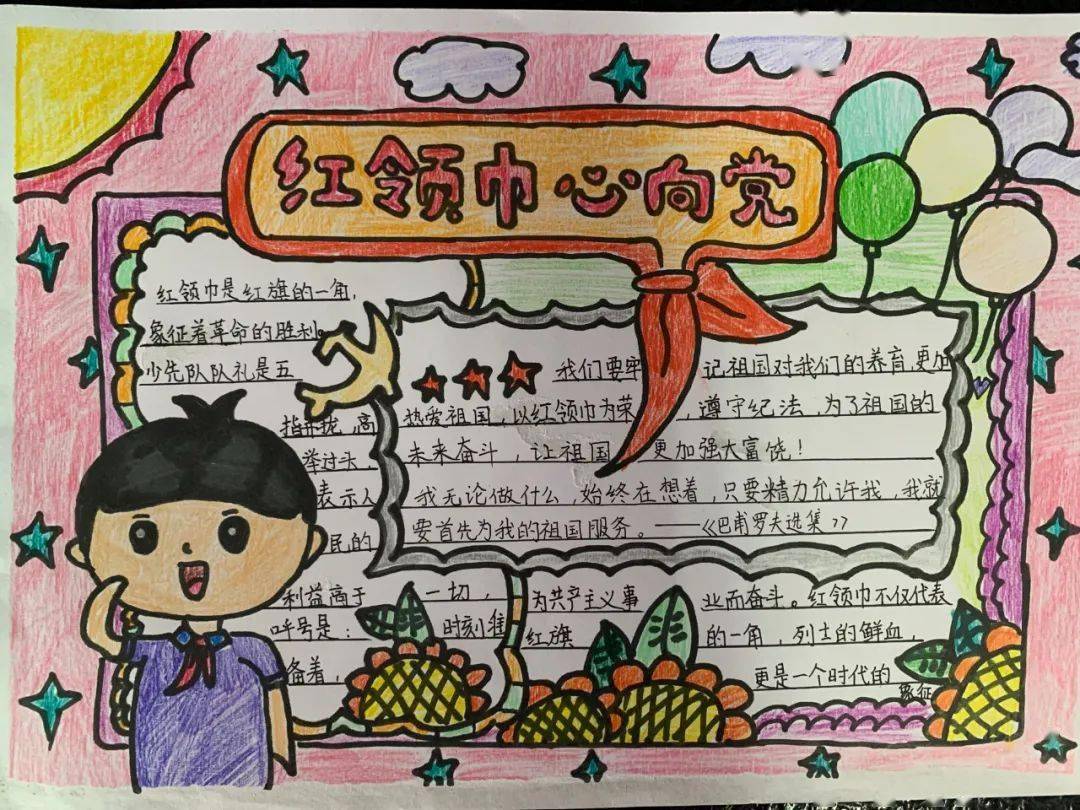 红领巾心向党
红领巾是红旗的一角,
象征着革命的胜利。
少先队队礼是五
指并拢,高
举过头,
表示人
民的
利益高于一切,
呼号是:时刻准
备着,
我们要牢记祖国对我们的养育,更加
热爱祖国,以红领巾为荣,遵守纪法,为了祖国的
未来奋斗,让祖国更加强大富饶!
我无论做什么,始终在想着,只要精力允许我,我就
要首先为我的祖国服务。——《巴甫罗夫选集》
为共产主义事业而奋斗。红领巾不仅代表
红旗的一角,烈士的鲜血,
更是一个时代的
象征